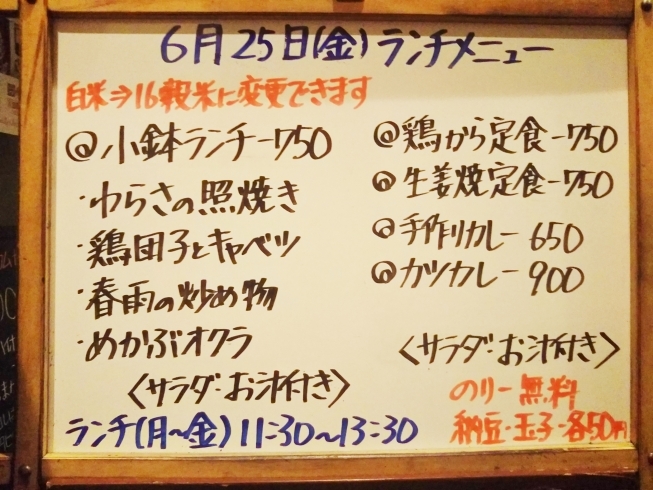 6月25日(金)ランチメニュー
白米⇒16穀米に変更できます
@小鉢ランチー750
・わらさの照焼き
・鶏団子とキャベツ
・春雨の炒め物
・めかぶオクラ
〈サラダ・お汁付き〉
ランチ(月〜金)11:30〜13:30
@鶏から定食-750
@生姜焼定食-750
@手作りカレー650
@カツカレー900
〈サラダ・お汁付き〉
のりー無料
納豆・玉子-各50円